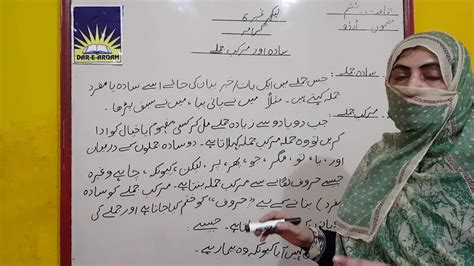 جماعت: ششم
مضمون: اردو
لیکچر نمبر 6
گرامر
سادہ اور مرکب جملے
DAR-E-ARQAM
سادہ جملے: جس جملے میں ایک بات/خبر بیان کی جائے اسے سادہ یا مفرد
جملہ کہتے ہیں۔ مثلاً میں نے پانی پیا، میں نے سبق پڑھا۔
مرکب جملے: جب دو یا دو سے زیادہ جملے مل کر کسی مفہوم یا خیال کو ادا
کریں تو وہ جملہ مرکب جملہ کہلاتا ہے۔ دو سادہ جملوں کے درمیان
اور، یا، تو، مگر، جو، پھر، پر، لیکن، کیونکہ، چاہے وغیرہ
جیسے حروف لگانے سے مرکب جملہ بنتا ہے۔ مرکب جملے کو سادہ
(مفرد) بنانے کے لیے "حروف" کو ختم کیا جاتا ہے اور جملے کی
جاتا ہے۔ جیسے:
نہیں آیا کیونکہ وہ بیمار ہے۔